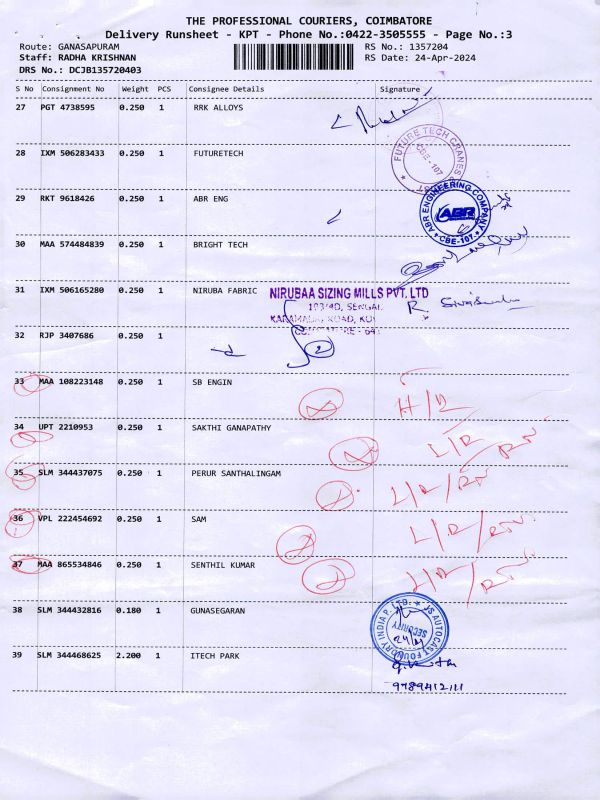 THE PROFESSIONAL COURIERS, COIMBATORE
Delivery Runsheet - KPT - Phone No.:0422-3505555 - Page No.:3
Route: GANASAPURAM RS No.: 1357204
Staff: RADHA KRISHNAN RS Date: 24-Apr-2024
DRS No.: DCJB135720403
S No Consignment No Weight PCS Consignee Details Signature
27 PGT 4738595 0.250 1 RRK ALLOYS
28 IXM 506283433 0.250 1 FUTURETECH
FUTURE TECH CRANES
CBE-107
29 RKT 9618426 0.250 1 ABR ENG
ABR ENGINEERING COMPANY
ABR
CBE-107
30 MAA 574484839 0.250 1 BRIGHT TECH
31 IXM 506165280 0.250 1 NIRUBA FABRIC
NIRUBAA SIZING MILLS PVT. LTD
32 RJP 3407686 0.250 1
2
33 MAA 108223148 0.250 1 SB ENGIN
34 UPT 2210953 0.250 1 SAKTHI GANAPATHY
L/R
35 SLM 344437075 0.250 1 PERUR SANTHALINGAM
L/R/RN
36 VPL 222454692 0.250 1 SAM
37 MAA 865534846 0.250 1 SENTHIL KUMAR
38 SLM 344432816 0.180 1 GUNASEGARAN
JS AUTOCAST FOUNDRY INDIA P. LTD.
SECURITY
39 SLM 344468625 2.200 1 ITECH PARK